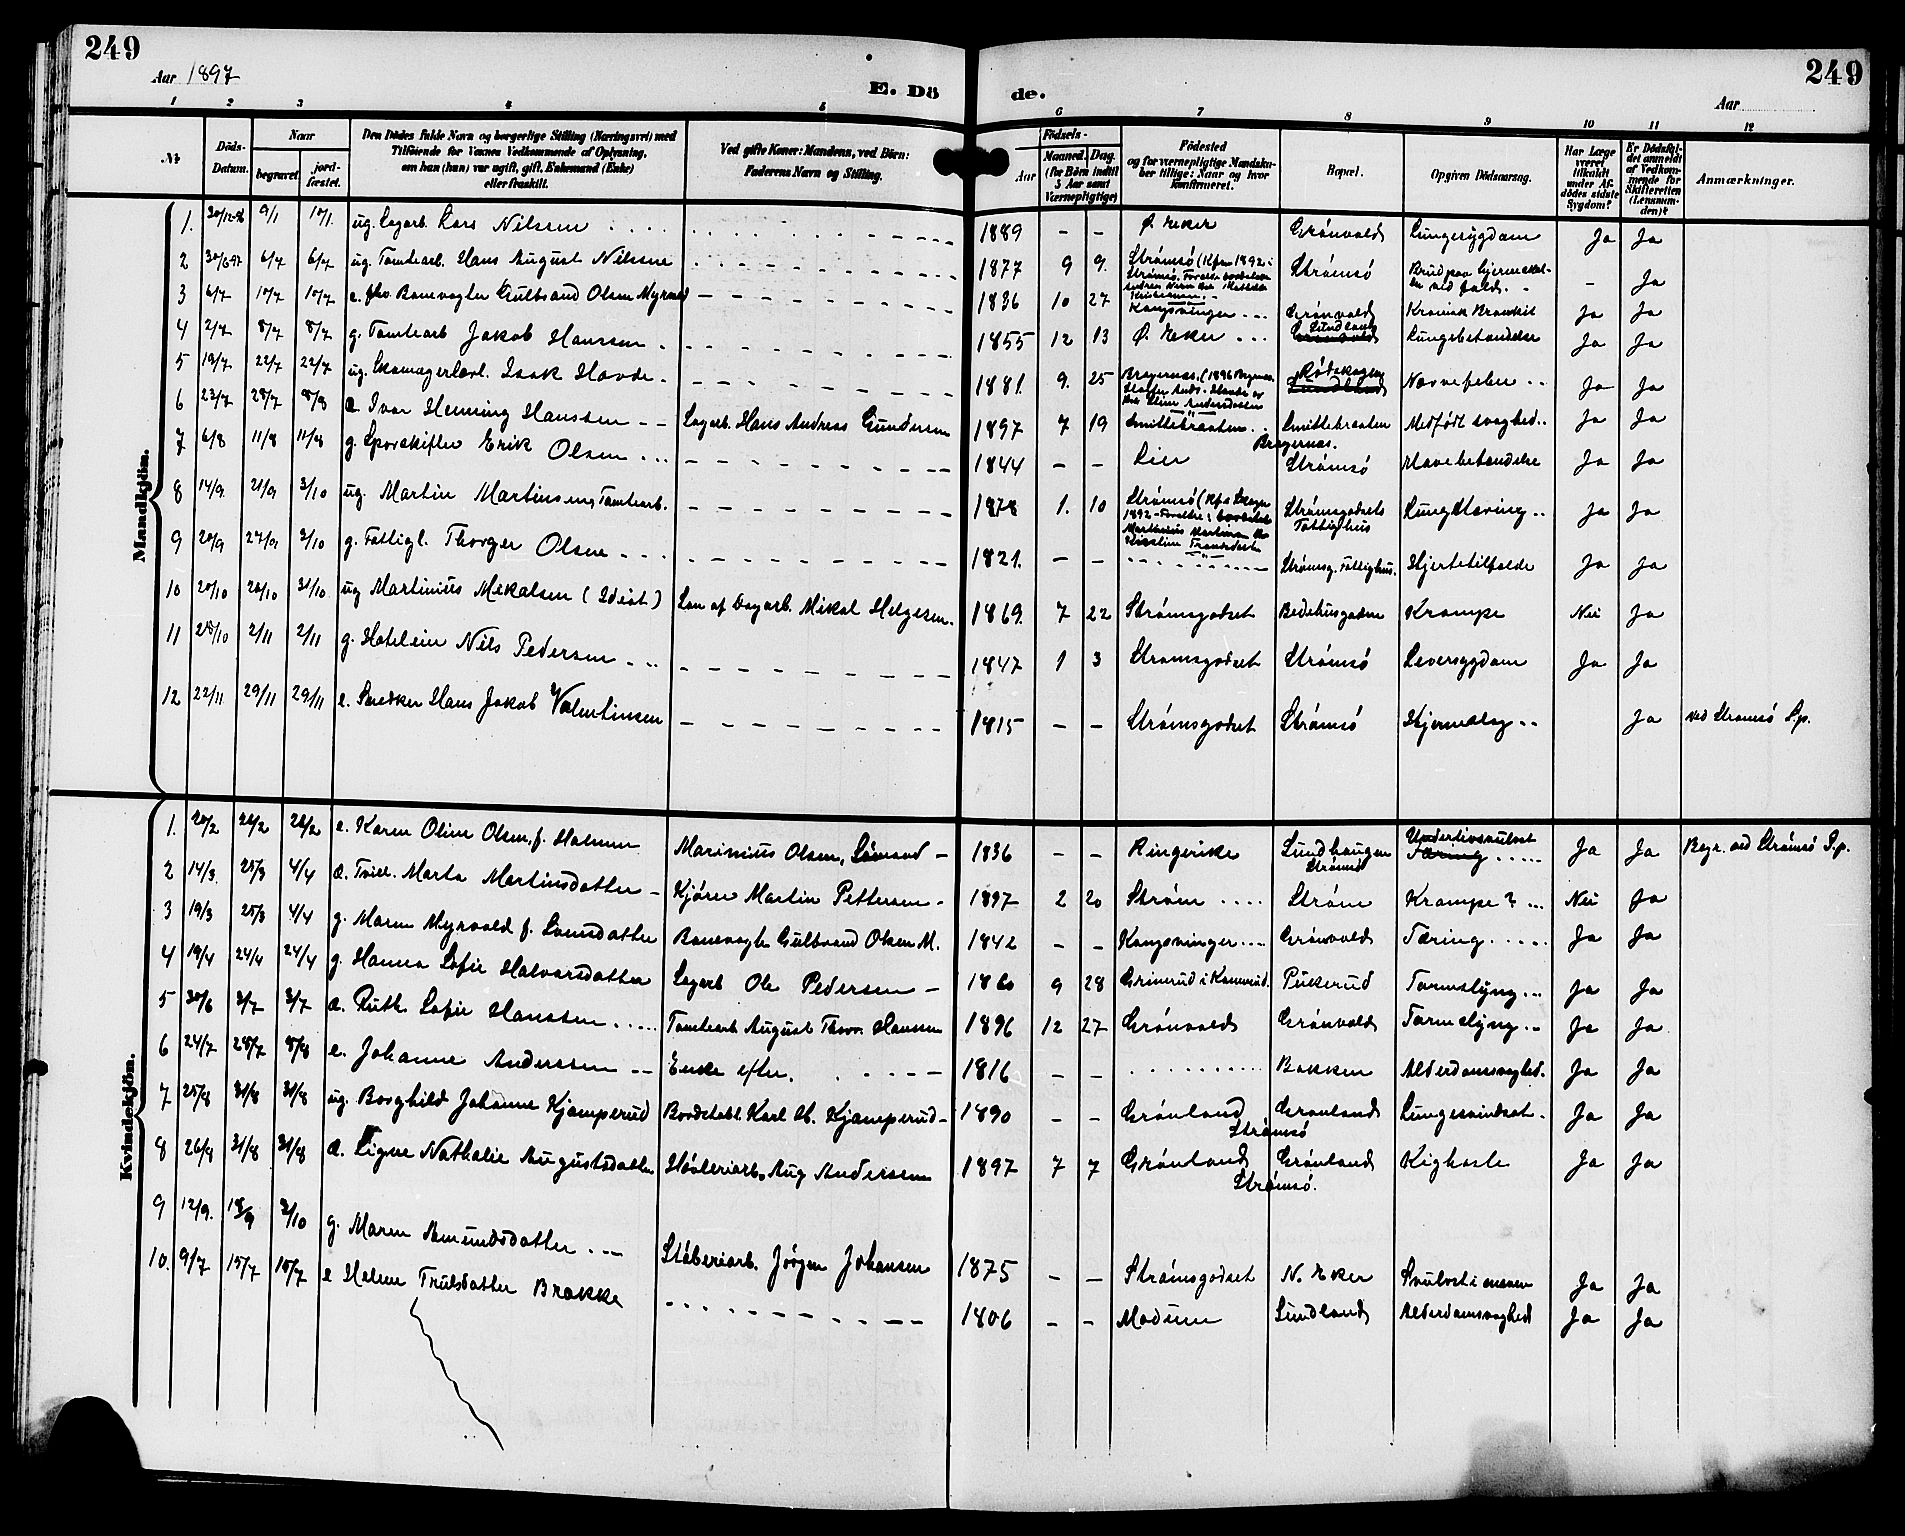 249
249
Aar 1897
E. Dö
de.
Aar
1 2 3 4 5 6 7 8 9 10 11 12
Nr
Döds-Datum.
Naar
begravet.
jord-fæstet.
Den Dödes fulde Navn og borgerlige Stilling (Næringsvei) med
Tilföiende for Voxnes Vedkommende af Oplysning,
om han (hun) var ugift, gift, Enkemand (Enke)
eller fraskilt.
Ved gifte Koner: Mandens, ved Börn:
Faderens Navn og Stilling.
Födsels-
Aar
Maaned. Dag.
(for Börn indtil
5 Aar samt
Værnepligtige)
Födested
og for værnepligtige Mandska-
ber tillige: Naar og hvor
konfirmeret.
Bopæl.
Opgiven Dödsaarsag.
Har Læge
været
tilkaldt
under Af-
dödes sidste
Sygdom?
Er Dödsfal-
det anmeldt
af Vedkom-
mende for
Skifteretten
(Lensman-
den)?
Anmærkninger.
Mandkjön.
1. 30/12-96 9/1 10/1. ug. Lars Nilssen 1889 - - Ø. Eker Grönvold Lungesygdom Ja Ja
2 30/6 97 6/7 6/7 ug. Tomtearb. Hans August Nilssen 1877 9 9. Strömsö (Kfm 1892 Strömsö - Ja
3 6/7 10/7 10/7 e. fhv. Banevogter Gulbrand Olsen Myrvold 1836 10 27 Kongsvinger Grönvold Kronisk Bronkit Ja Ja
4 2/7 8/7 8/7 g. Tomtearb Jakob Hanssen 1855 12 13 Ø. Eker Sundland Lungebetændelse Ja Ja
5 19/7 22/7 22/7 ug. Skomagerlærl. Isak Hovde 1881. 9. 25 Bragernæs. (1896 Nervefeber Ja Ja
6 23/7 28/7 8/8 d. Ivar Henning Hanssen Hans Andreas Gundersen 1897 7 19 Smittebraaten Smittebraaten Bragernæs. Medfødt svaghed Ja Ja
7 6/8 11/8 11/8 g. Sporskifter Erik Olsen 1844 - - Lier Strömsö Mavebetændelse Ja Ja
8 14/9. 21/9 3/10 ug. Martin Martinsen, Tomtearb. 1878 1. 10 Strömsö (Kfm 1892 - Forældre: Strömsgodsets Fattighus Lungetæring Ja Ja
9 20/9 27/9 3/10 g. Fattigl. Thorger Olsen 1821. - - Strömsg. Fattighus. Hjertetilfælde Ja Ja
10 20/10 26/10 31/10 ug Martinius Mikalsen (Idiot) Søn af Dagarb. Mikal Helgesen. 1869. 7 22 Strömsgodset Bedehusgaden Krampe Nei Ja
11 28/10 2/11 2/11 g. Hoteleier Nils Pedersen 1847 1 3 Strömsgodset Strömsö Leversygdom Ja Ja
12 22/11 29/11 29/11 e. Snedker Hans Jakob Valentinsen 1815 - - Strömsgodset Strömsö Hjerneslag Ja ved Strömsö Sp.
Kvindekjön.
1. 20/2 26/2 26/2 e. Karen Oline Olsen, f. Marinius Olsen, Sömand 1836 - - Ringerike Sundhaugen Strömsö Underlivssvulst Ja Ja Begr. ved Strömsö Sp.
2 14/3. 25/3 4/4 d. Tvill. Marta Martinsdatter Kjörer Martin Pettersen 1897 2 20 Ström Ström Krampe? Nei Ja
3 19/3 25/3 4/4 g. Maren Myrvold f. Banevogter Gulbrand Olsen M. 1842 - - Kongsvinger Grönvold Tæring Ja Ja
4 19/4 24/4 24/4 g. Hanna Sofie Halvorsdatter Ole Pedersen 1860 9 28 Pukerud Tarmslyng Ja Ja
5 30/6 3/7 3/7 d. Ruth Sofie Hanssen Tomtearb August Thorv. Hanssen 1896 12 27 Grönvold Grönvold Tarmslyng Ja Ja
6 24/7 28/7 8/8 e. Johanne Anderssen Enke efter. 1816 - - Bakken Alderdomssvaghed. Ja Ja
7 25/8 31/8 31/8 ug. Borghild Johanne Kjæmperud Bordstabl. Karl H. Kjæmperud 1890 - - Grönland Strömsö Grönland Ja Ja
8 26/8 31/8 31/8 d. Signe Nathalie Augustsdatter Høvleriarb. Aug Andersen 1897 7 7 Grönland Strömsö. Grönland Kighoste Ja Ja
9 12/9. 18/9 3/10 g. Maren Amundsdatter Støberiarb. Jörgen Johansen 1875 - - Strömsgodset N. Eker Svulst i maven Ja Ja
10. 9/7 15/7 15/7 e Helene Trulsdatter Brakke 1806 - - Modum Sundland Alderdomssvaghed Ja Ja